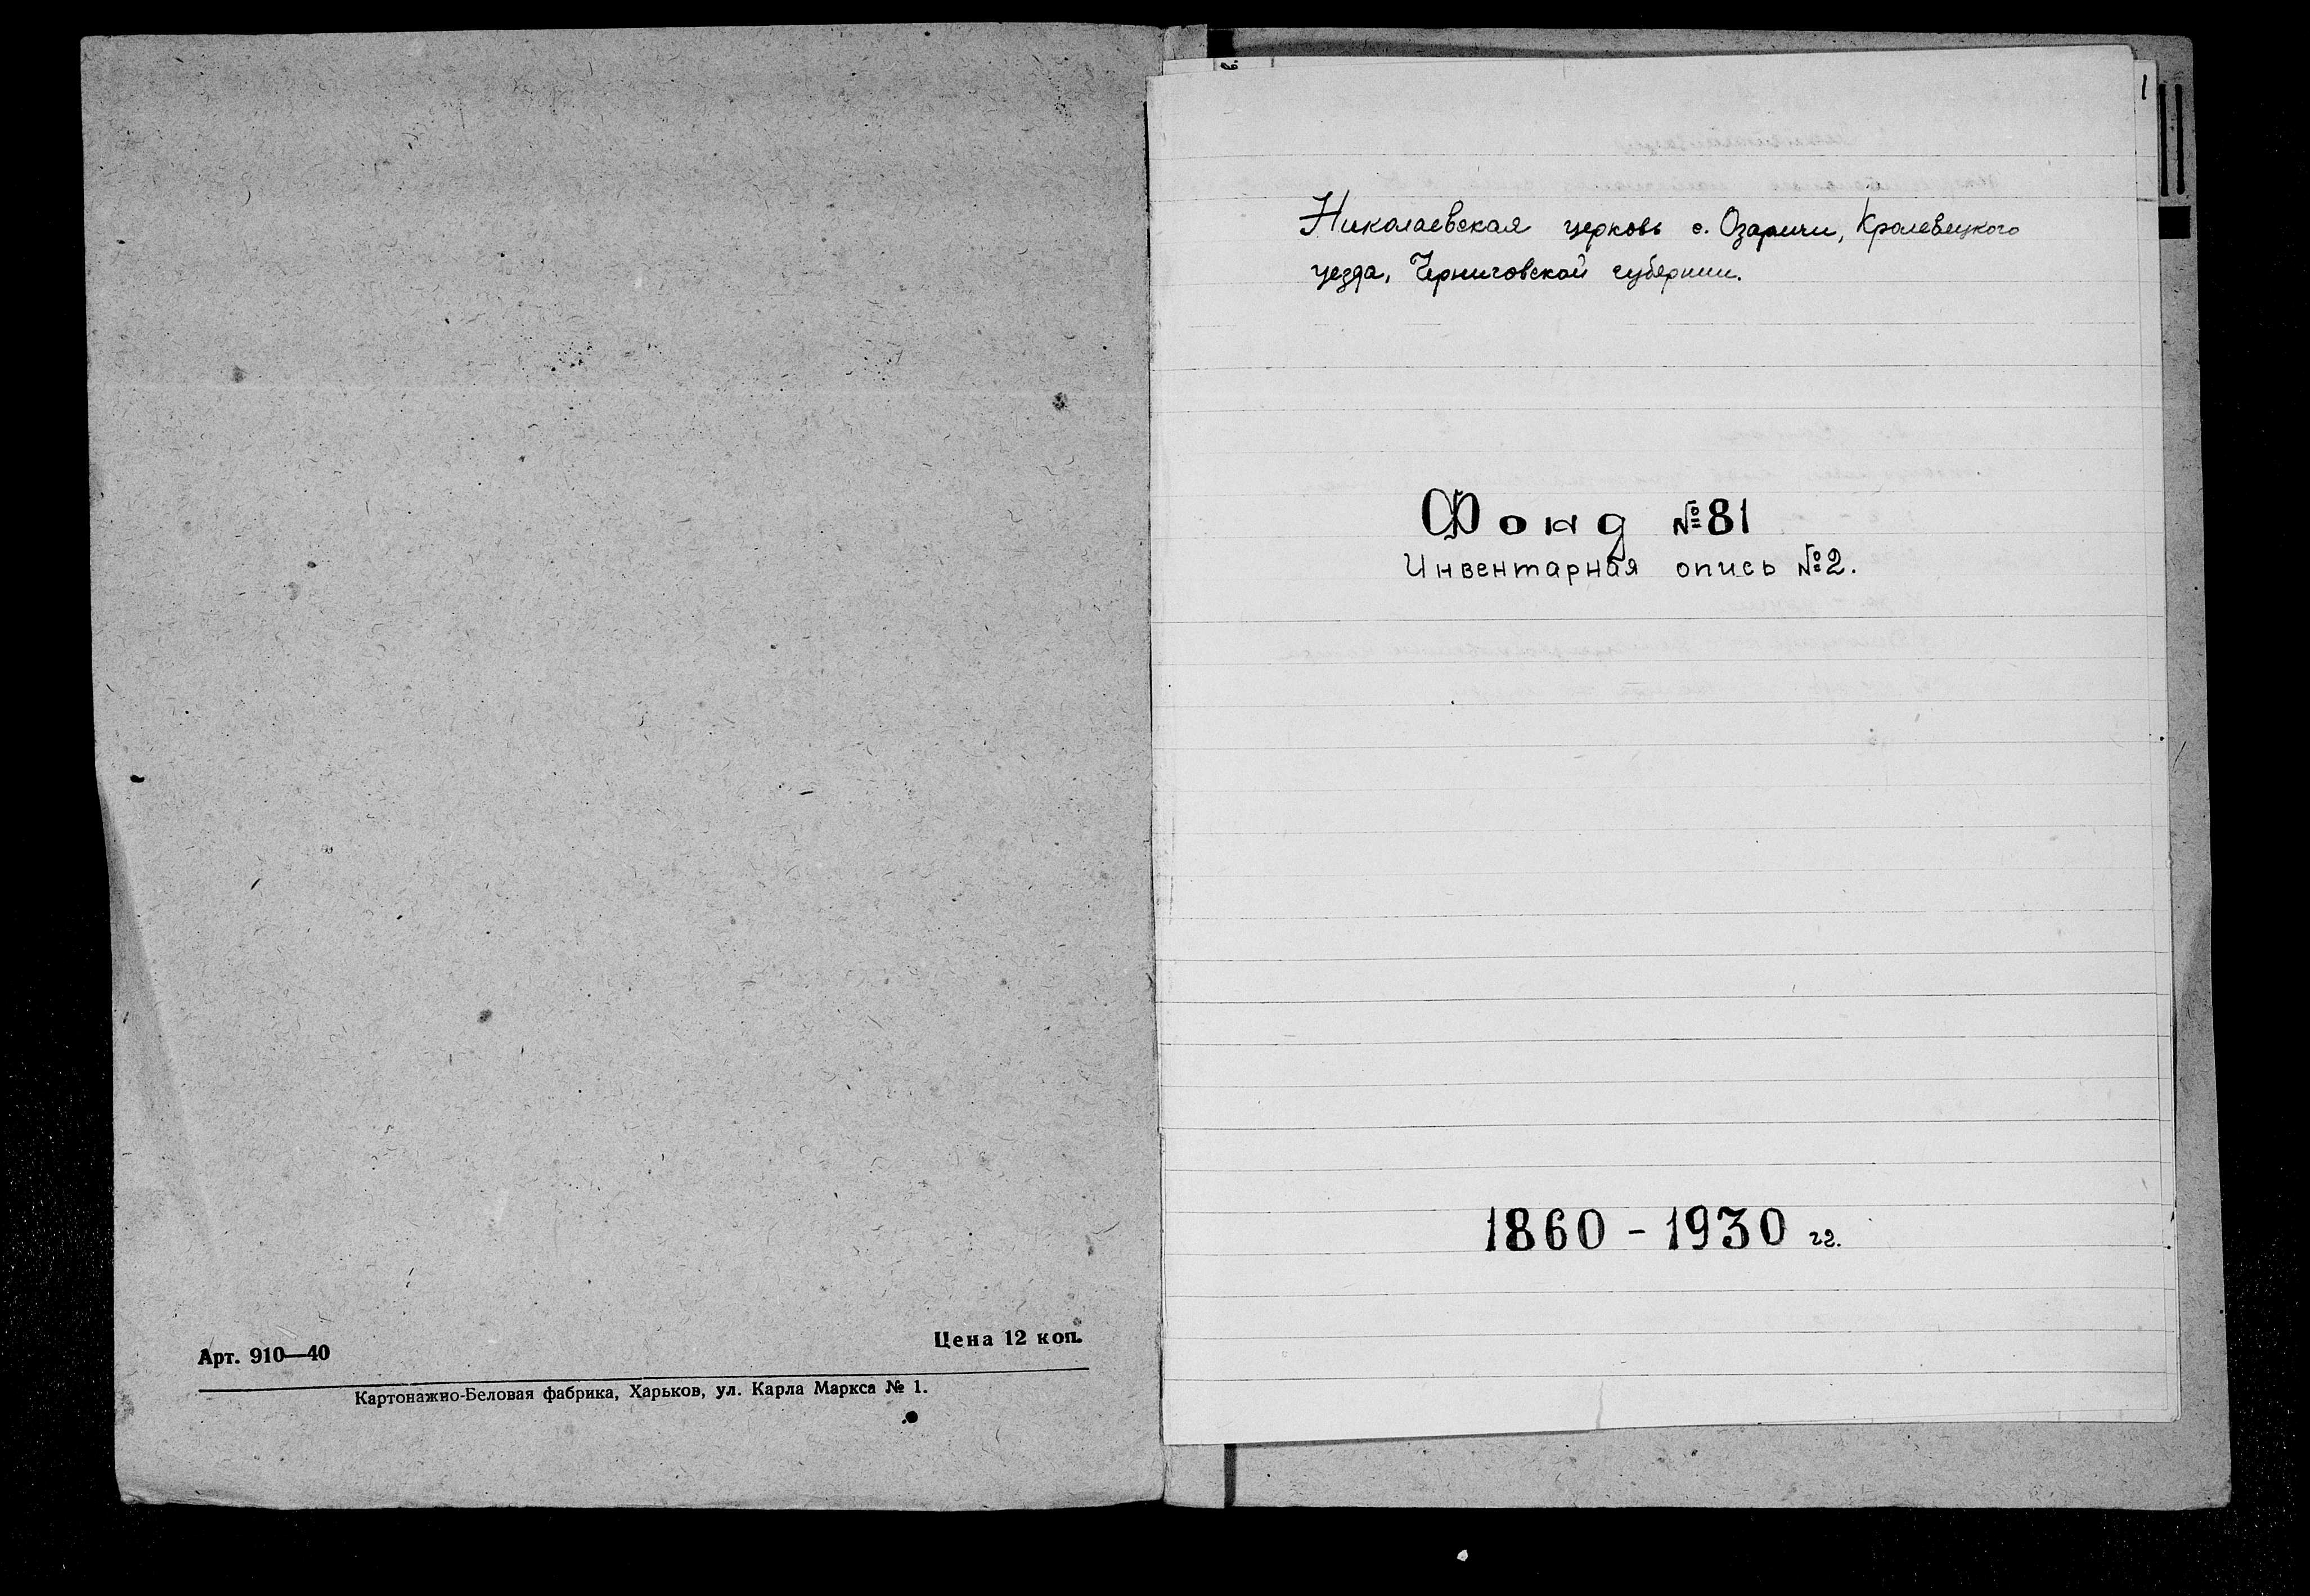 Арт. 910—40
Цена 12 коп.
Картонажно-Беловая фабрика, Харьков, ул. Карла Маркса № 1.
1
Николаевская церковь с. Озаричи, Кролевецкого
уезда, Черниговской губернии.
Фонд №81
Инвентарная опись №2.
1860 - 1930 гг.